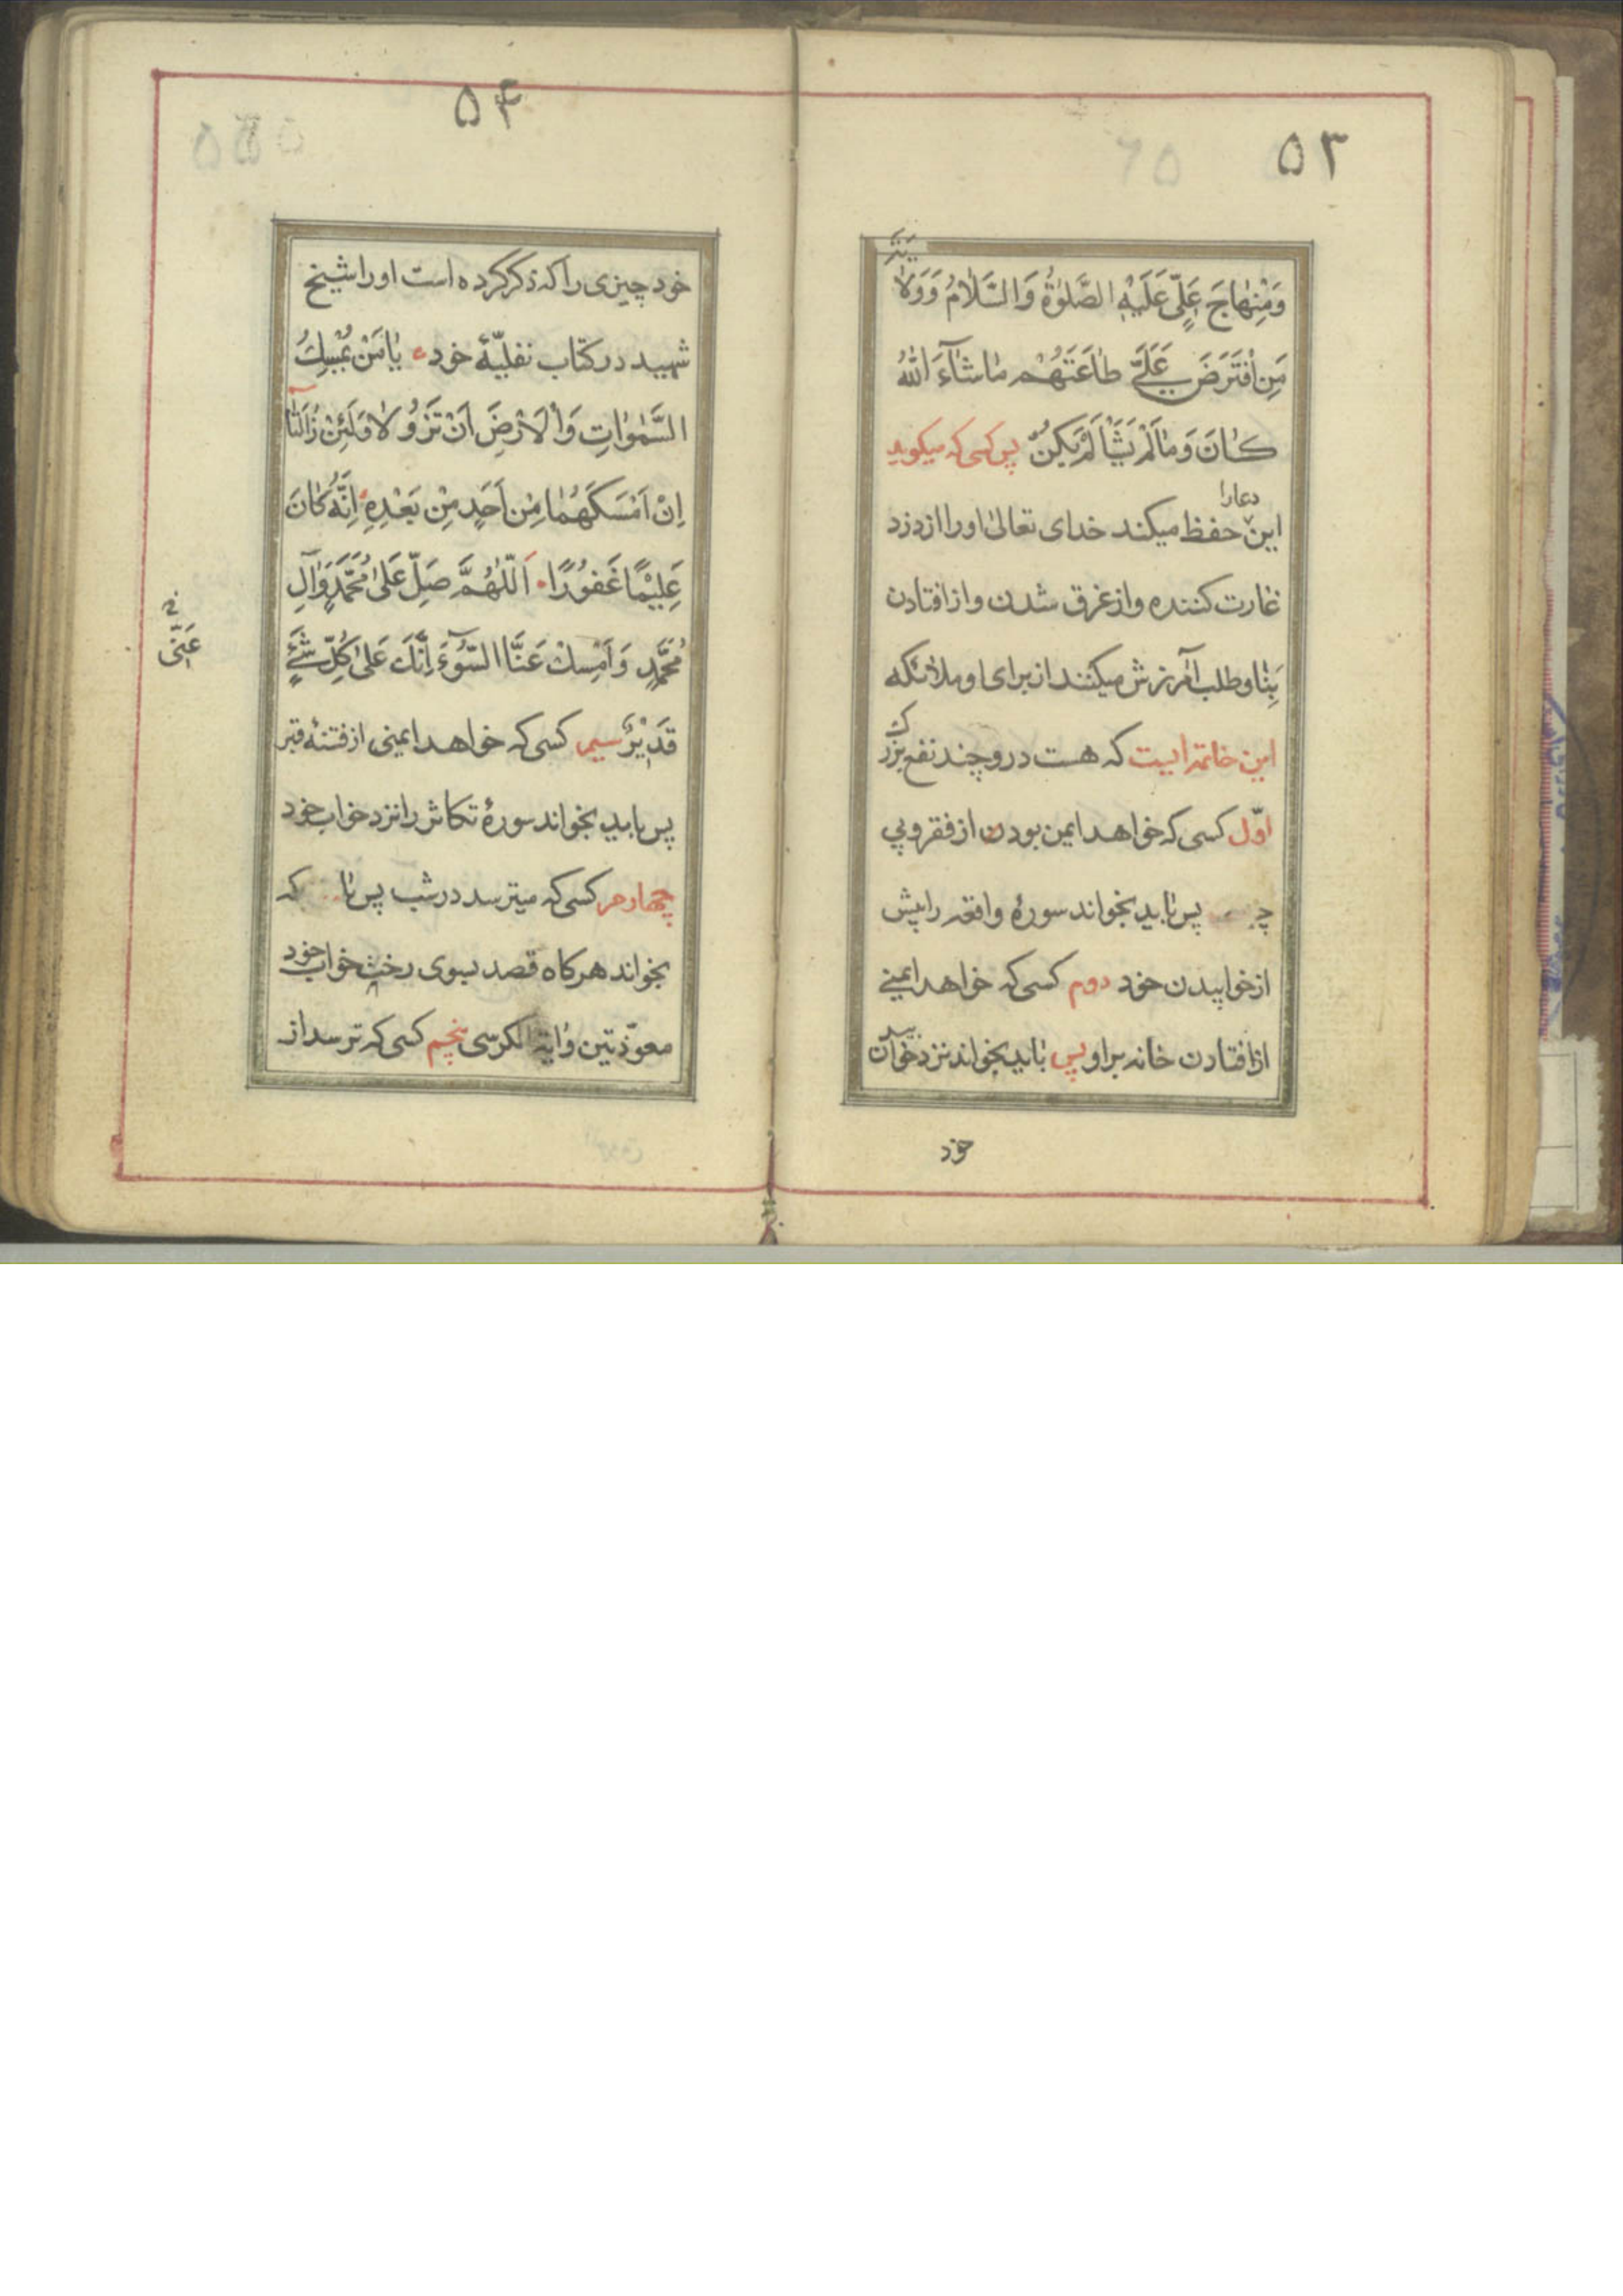 ۵۳
وَمِنْهاجَ عَلِيٍّ عَلَيْهِ الصَّلوٰةُ وَالسَّلامُ وَوَلا
يَتِهِ
مَنِ افْتَرَضَ عَلَيَّ طاعَتَهُمْ ماشآءَ اللّٰهُ
كانَ وَمالَمْ يَشَأْ لَمْ يَكُنْ پس کسی که میکوید
دعارا
این حفظ میکند خدای تعالیٰ اورا از دزد
غارت کننده و از غرق شدن و از افتادن
بِنا و طلب آمرزش میکنند از برای او ملائکه
این خاتمه ایست که هست درو چند نفع بزر
ک
اوّل کسی که خواهد ایمن بودن از فقر و پی
پس باید بخواند سورهٔ واقعه را پیش
از خوابیدن خود دوم کسی که خواهد ایمنی
از افتادن خانه بر او پس باید بخواند نزد خوابیدن
خود
۵۴
خود چیزی را که ذکر کرده است اورا شیخ
شهید در کتاب نفلیّهٔ خود یامَنْ يُمْسِكُ
السَّمٰواتِ وَالْاَرْضَ اَنْ تَزُولا وَلَئِنْ زالَتا
اِنْ اَمْسَكَهُما مِنْ اَحَدٍ مِنْ بَعْدِهِ اِنَّهُ كانَ
عَلِيْمًا غَفُورًا اَللّٰهُمَّ صَلِّ عَلىٰ مُحَمَّدٍ وَآلِ
مُحَمَّدٍ وَاَمْسِكْ عَنَّا السُّوٓءَ اِنَّكَ عَلىٰ كُلِّ شَيْءٍ
عَنّی
قَدِيْرٌ سیم کسی که خواهد ایمنی از فتنهٔ قبر
پس باید بخواند سورهٔ تکاثر را نزد خواب خود
چهارم کسی که میترسد در شب پس با که
بخواند هرکاه قصد بسوی رخت خواب خود
معوّذتین و ایة الکرسی پنجم کسی که ترسد از